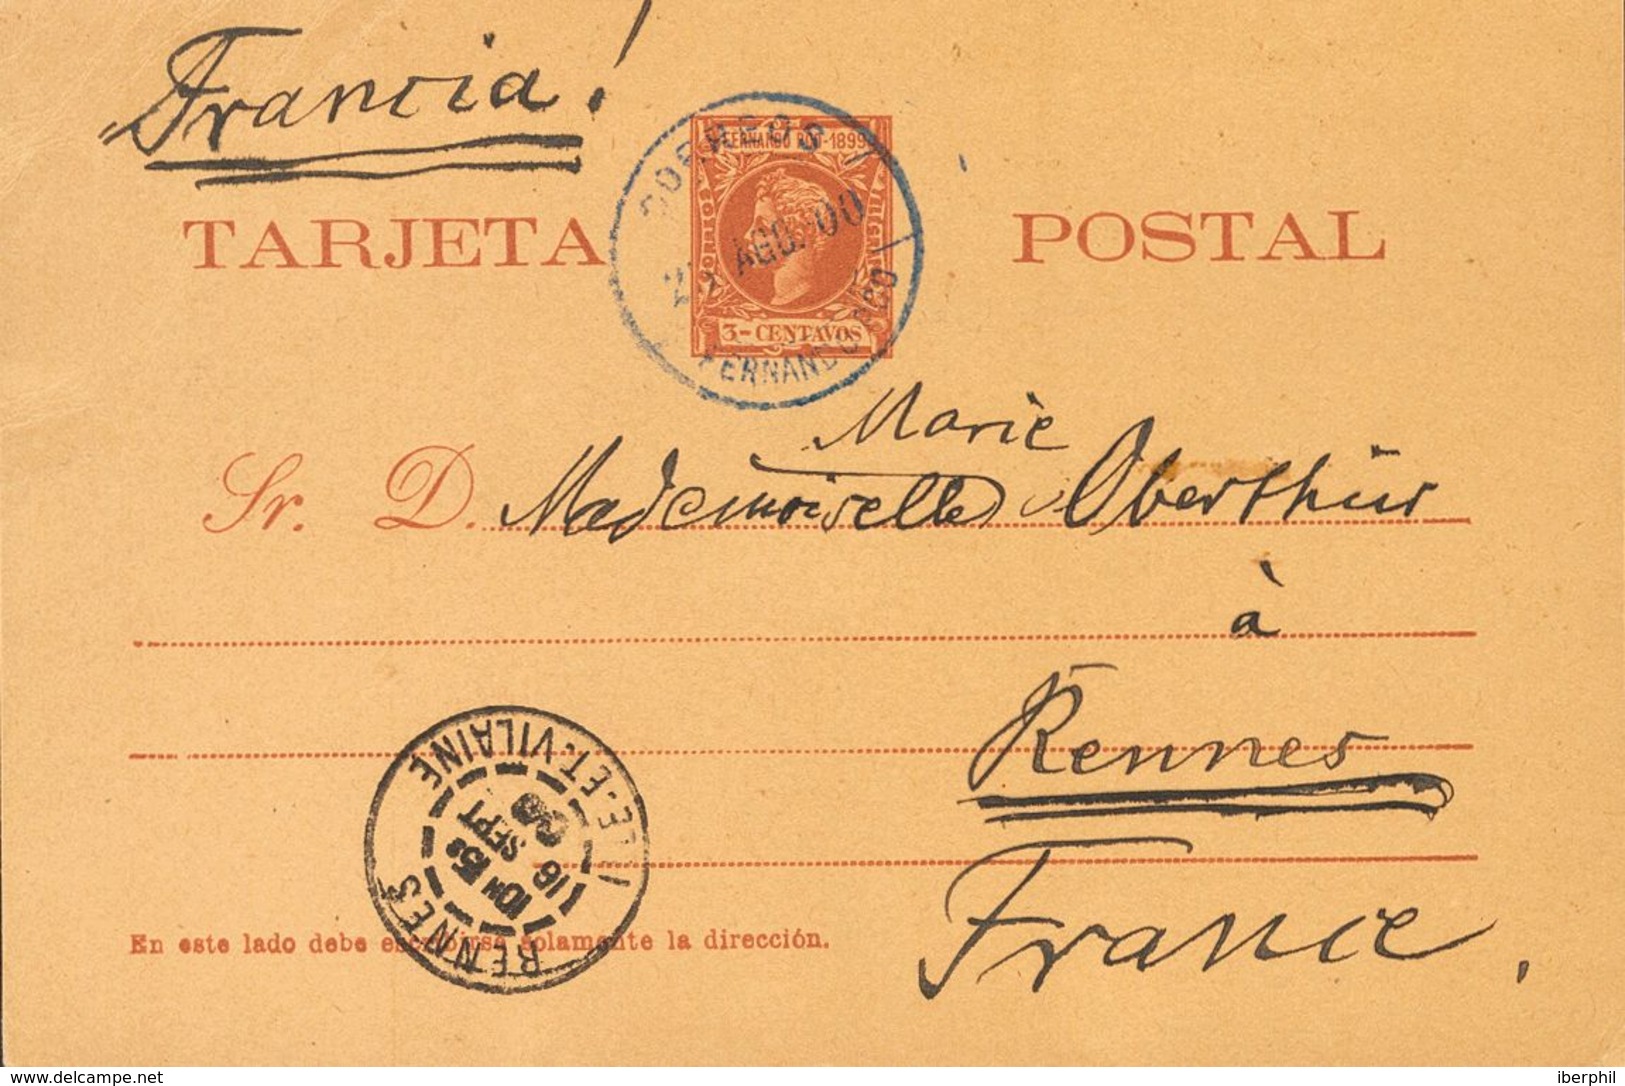 Francia!
FERNANDO POO-1899
CORREOS
AGO. 00
FERNANDO POO
CORREOS
3-CENTAVOS
TARJETA POSTAL
Marie
Sr. D. Mademoiselle Oberthür
à
Rennes
France.
RENNES
ILLE-ET-VILAINE
10H 15S
16
SEPT
00
En este lado debe escribirse solamente la dirección.
www.delcampe.net
iberphil